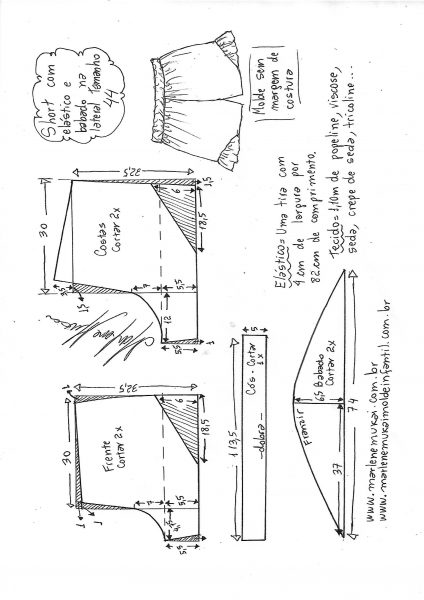 Short com
elástico e
babado na
lateral tamanho
44
Molde sem
margem de
costura
Elástico = Uma tira com
4 cm de largura por
82 cm de comprimento.
Tecido = 1,10m de popeline, viscose,
seda, crepe de seda, tricoline...
32,5
30
Costas
Cortar 2x
6
1,5
18,5
3,5
1,5
7
5,5
12
5,5
1
Marlene Mukai
32,5
1
30
Frente
Cortar 2x
6
18,5
1
1
7
5,5
5,5
113,5
5
Cós - Cortar
1x
dobra
Franzir
6,5 Babado
Cortar 2x
37
74
www.marlenemukai.com.br
www.marlenemukaimoldeinfantil.com.br